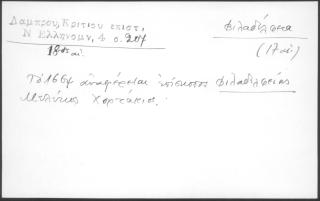 Λαμπρου, Κριτιου επιστ.
Ν Ελληνομν, 4 σ. 207
18ου αι.
Φιλαδέλφεια
(17 αι)
Τὸ 1657 ἀναφέρεται ἐπίσκοπος Φιλαδελφείας
Μελέτιος Χορτάκιος.